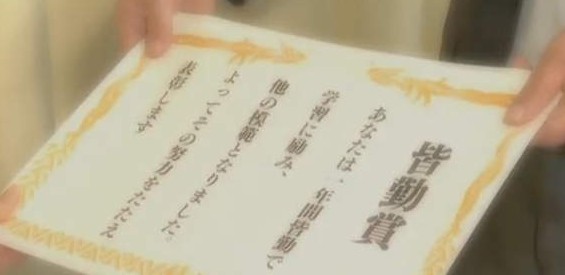 皆勤賞
あなたは、年間皆勤で
学習に励み、
他の模範となりました。
よってその努力をたたえ
表彰します